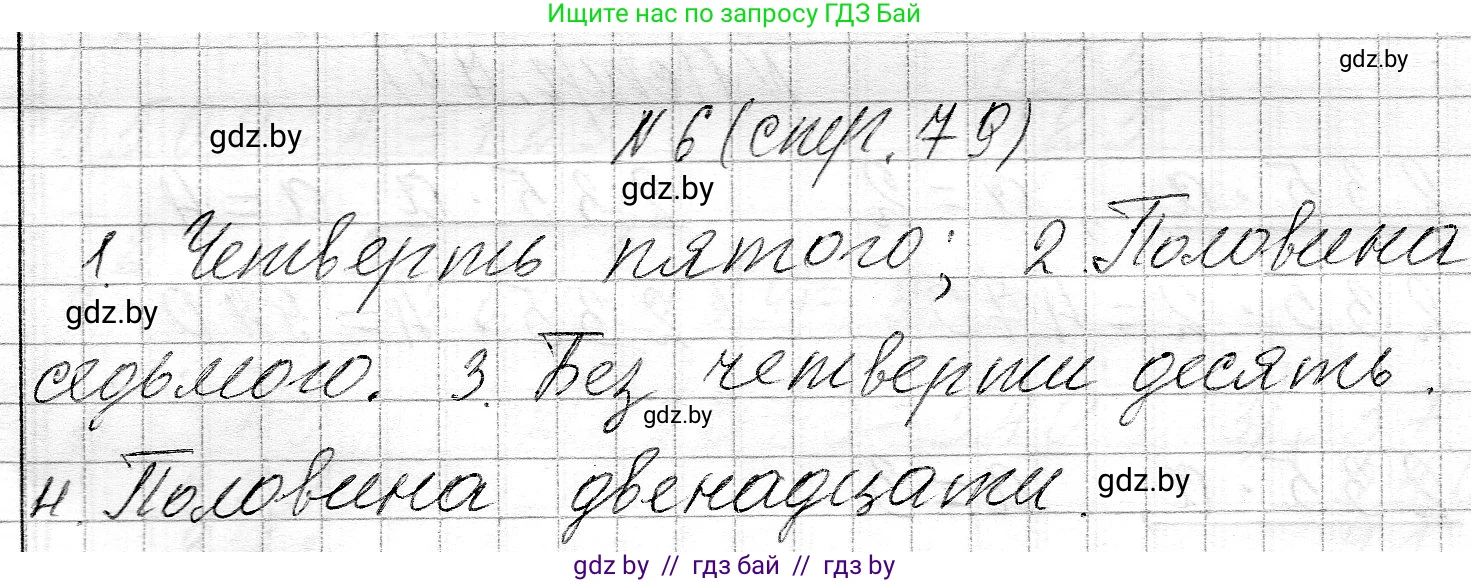 Ищите нас по запросу ГДЗ Бай
gdz.by
gdz.by
N 6 (стр. 79)
gdz.by
1. Четверть пятого; 2. Половина
gdz.by
седьмого. 3. Без четверти десять.
gdz.by
4. Половина двенадцати.
gdz.by
gdz by // гдз бай // гдз by